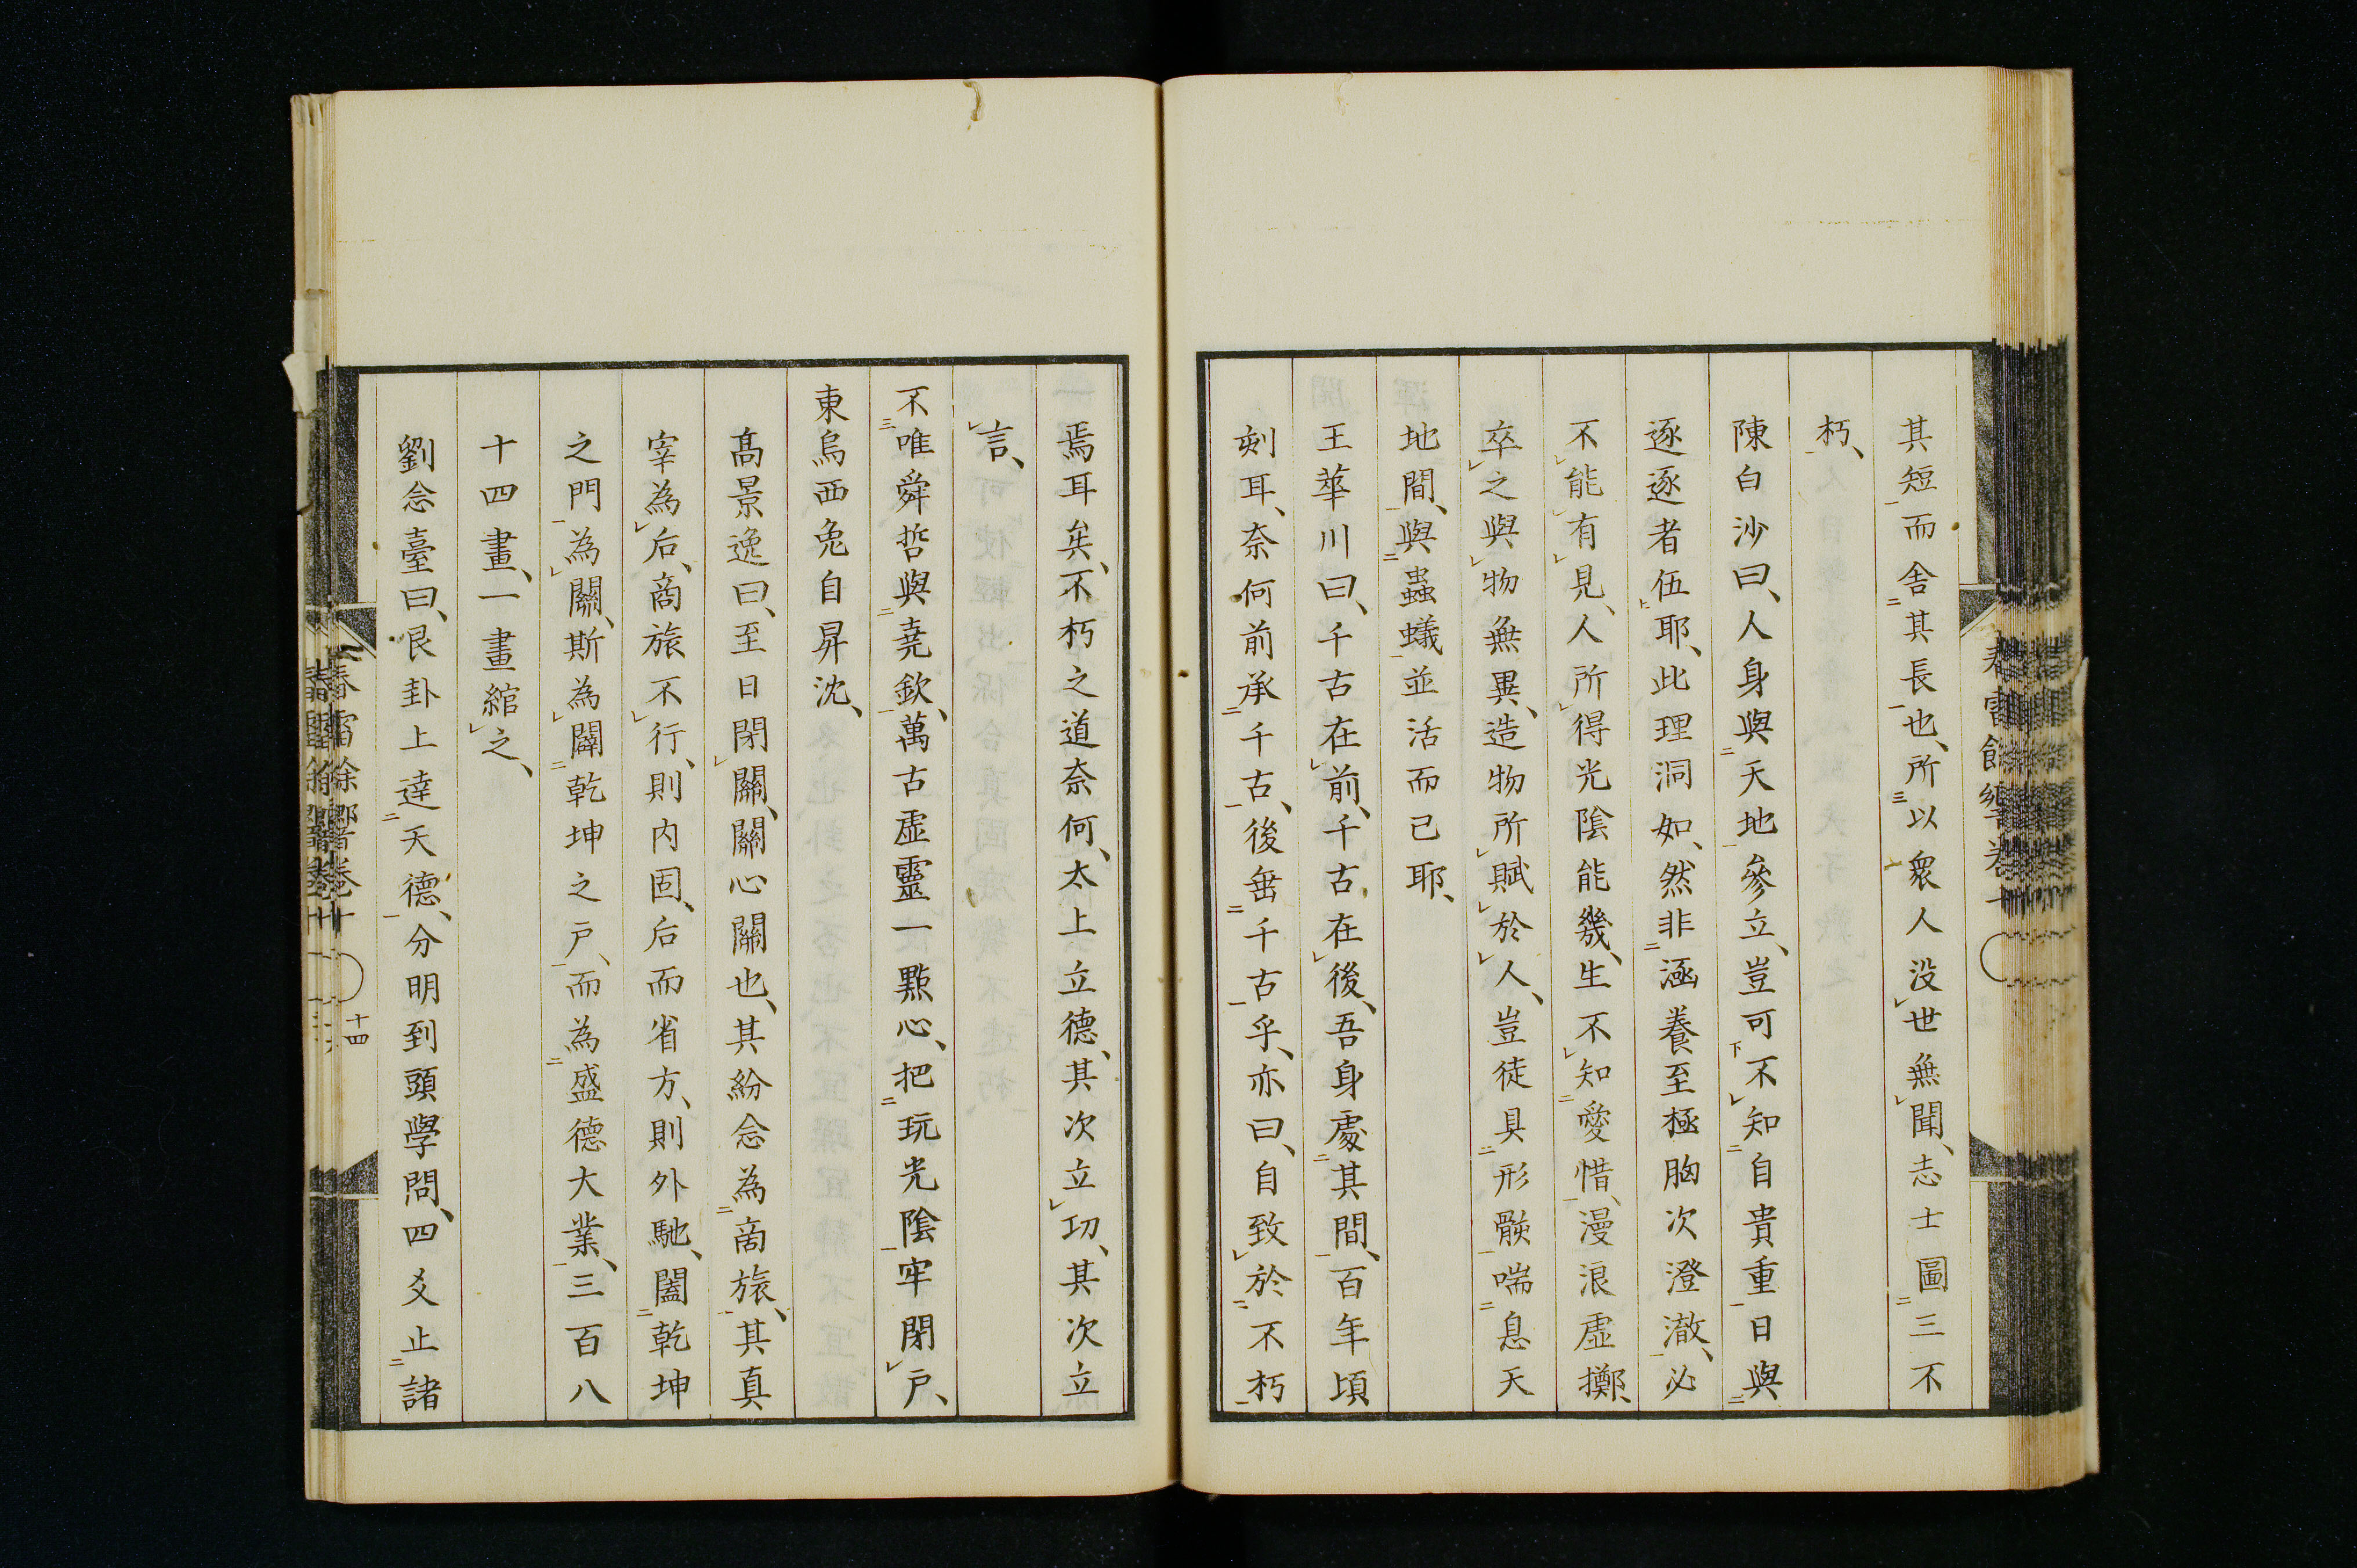 其短而舎其長也、所以衆人没世無聞、志士圖三不
朽、
陳白沙曰、人身與天地參立、豈可不知自貴重日與
逐逐者伍耶、此理洞如、然非涵養至極胸次澄澈、必
不能有見、人所得光陰能幾、生不知愛惜、漫浪虛擲、
卒之與物無異、造物所賦於人、豈徒具形骸喘息天
地間、與蟲蟻並活而已耶、
王華川曰、千古在前、千古在後、吾身處其間、百年頃
刻耳、奈何前承千古、後垂千古乎、亦曰、自致於不朽
焉耳矣、不朽之道奈何、太上立德、其次立功、其次立
言、
不唯舜哲與堯欽、萬古虛靈一點心、把玩光陰牢閉戶、
東烏西兔自昇沈、
高景逸曰、至日閉關、關心關也、其紛念為商旅、其真
宰為后、商旅不行、則内固、后而省方、則外馳、闔乾坤
之門為關、斯為闢乾坤之戶、而為盛德大業、三百八
十四畫、一畫綰之、
劉念臺曰、艮卦上達天德、分明到頭學問、四爻止諸
十四